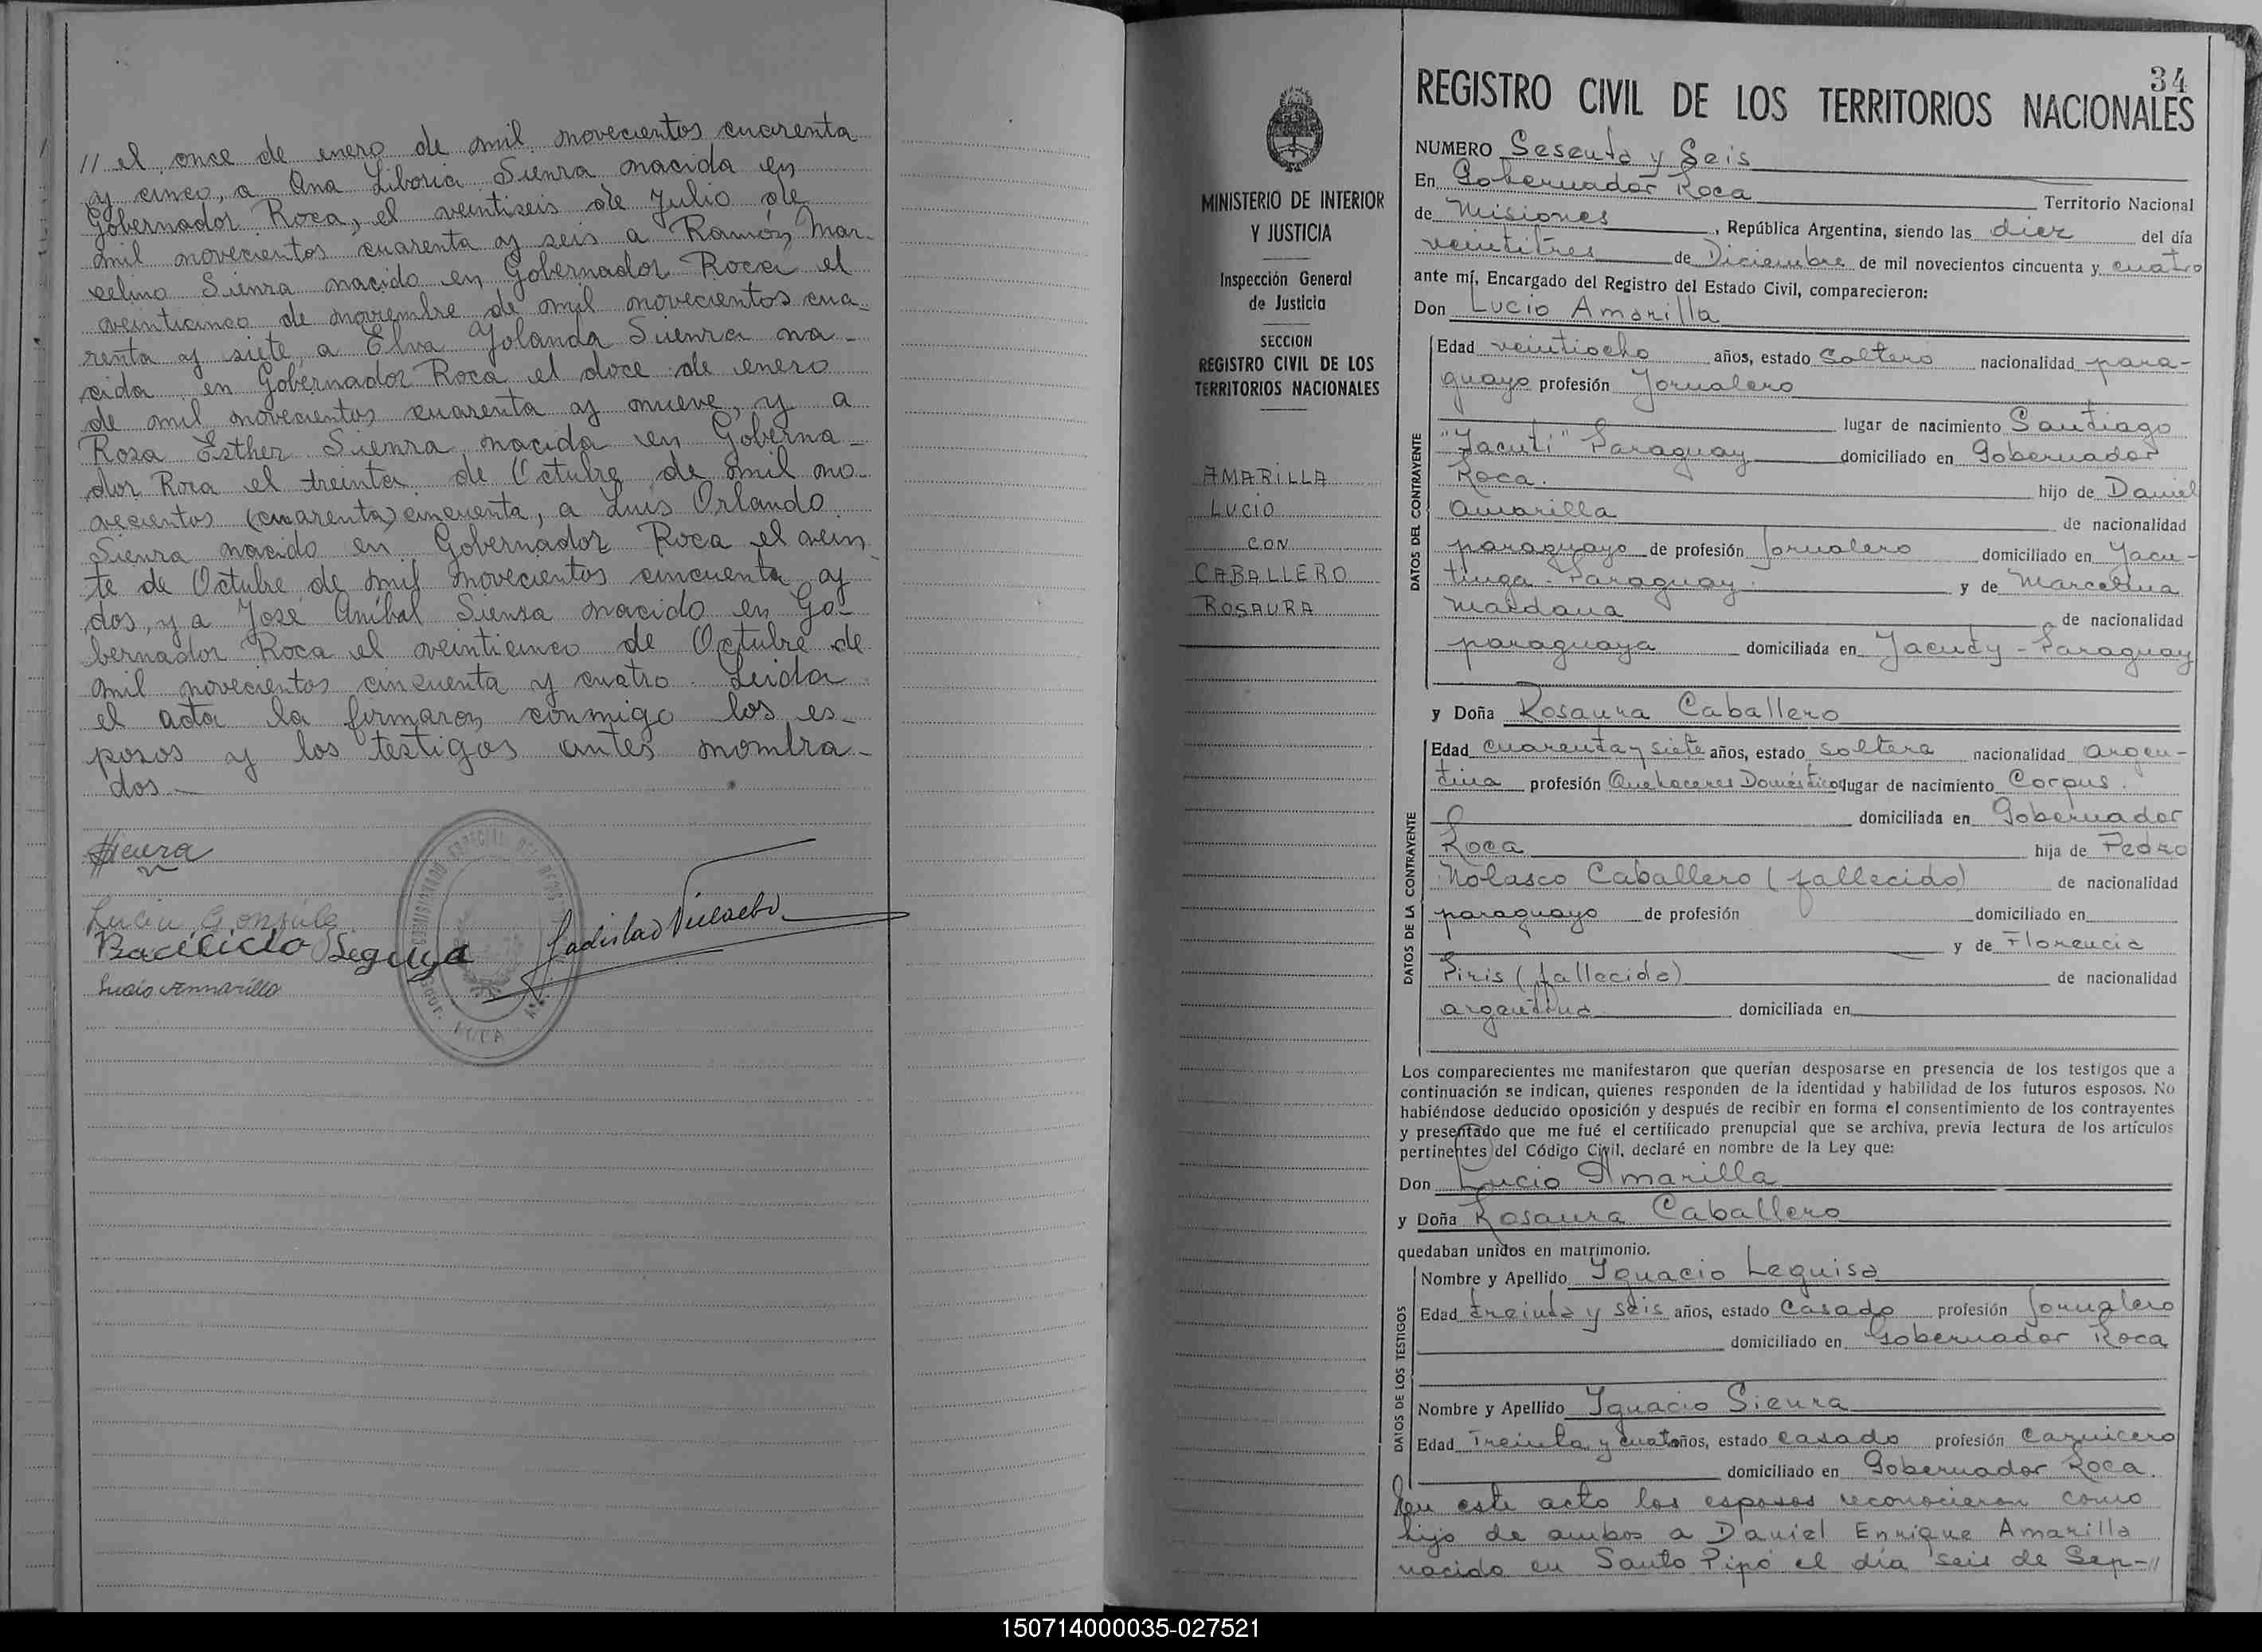 // el once de enero de mil novecientos cuarenta
y cinco, a Ana Liboria Sienra nacida en
Gobernador Roca, el veintiseis de Julio de
mil novecientos cuarenta y seis a Ramón Mar-
celino Sienra nacido en Gobernador Roca el
veinticinco de noviembre de mil novecientos cua-
renta y siete, a Elva Yolanda Sienra na-
cida en Gobernador Roca el doce de enero
de mil novecientos cuarenta y nueve, y a
Rosa Esther Sienra nacida en Goberna-
dor Roca el treinta de Octubre de mil no-
vecientos (cuarenta) cincuenta, a Luis Orlando
Sienra nacido en Gobernador Roca el vein-
te de Octubre de mil novecientos cincuenta y
dos, y a José Aníbal Sienra nacido en Go-
bernador Roca el veinticinco de Octubre de
mil novecientos cincuenta y cuatro. Leida
el acta la firmaron conmigo los es-
posos y los testigos antes nombra-
dos.-
Sienra
Lucia Gonzále
Bacilicio Leguiza
Lucio Ammarilla
Ladislao
ROCA
MINISTERIO DE INTERIOR
Y JUSTICIA
Inspección General
de Justicia
SECCION
REGISTRO CIVIL DE LOS
TERRITORIOS NACIONALES
AMARILLA
LUCIO
CON
CABALLERO
ROSAURA
34
REGISTRO CIVIL DE LOS TERRITORIOS NACIONALES
NUMERO Sesenta y Seis
En Gobernador Roca Territorio Nacional
de Misiones, República Argentina, siendo las diez del día
veintitres de Diciembre de mil novecientos cincuenta y cuatro
ante mí, Encargado del Registro del Estado Civil, comparecieron:
Don Lucio Amarilla
DATOS DEL CONTRAYENTE
Edad veintiocho años, estado Soltero nacionalidad para-
guayo profesión Jornalero
lugar de nacimiento Santiago
"Jacuti" Paraguay domiciliado en Gobernador
Roca. hijo de Daniel
Amarilla de nacionalidad
paraguayo de profesión Jornalero domiciliado en Yacu-
tinga - Paraguay. y de Marcelina
Maidana de nacionalidad
paraguaya domiciliada en Jacuty - Paraguay
y Doña Rosaura Caballero
DATOS DE LA CONTRAYENTE
Edad cuarenta y siete años, estado soltera nacionalidad argen-
tina profesión Quehaceres Domésticos lugar de nacimiento Corpus.
domiciliada en Gobernador
Roca hija de Pedro
Nolasco Caballero (fallecido) de nacionalidad
paraguayo de profesión domiciliado en
y de Florencia
Piris (fallecida) de nacionalidad
argentina domiciliada en
Los comparecientes me manifestaron que querían desposarse en presencia de los testigos que a
continuación se indican, quienes responden de la identidad y habilidad de los futuros esposos. No
habiéndose deducido oposición y después de recibir en forma el consentimiento de los contrayentes
y presentado que me fué el certificado prenupcial que se archiva, previa lectura de los artículos
pertinentes del Código Civil, declaré en nombre de la Ley que:
Don Lucio Amarilla
y Doña Rosaura Caballero
quedaban unidos en matrimonio.
DATOS DE LOS TESTIGOS
Nombre y Apellido Ignacio Leguisa
Edad treinta y seis años, estado Casado profesión Jornalero
domiciliado en Gobernador Roca
Nombre y Apellido Ignacio Sienra
Edad Treinta y cuatro años, estado casado profesión Carnicero
domiciliado en Gobernador Roca.
En este acto los esposos reconocieron como
hijo de ambos a Daniel Enrique Amarilla
nacido en Santo Pipó el día seis de Sep-//
150714000035-027521